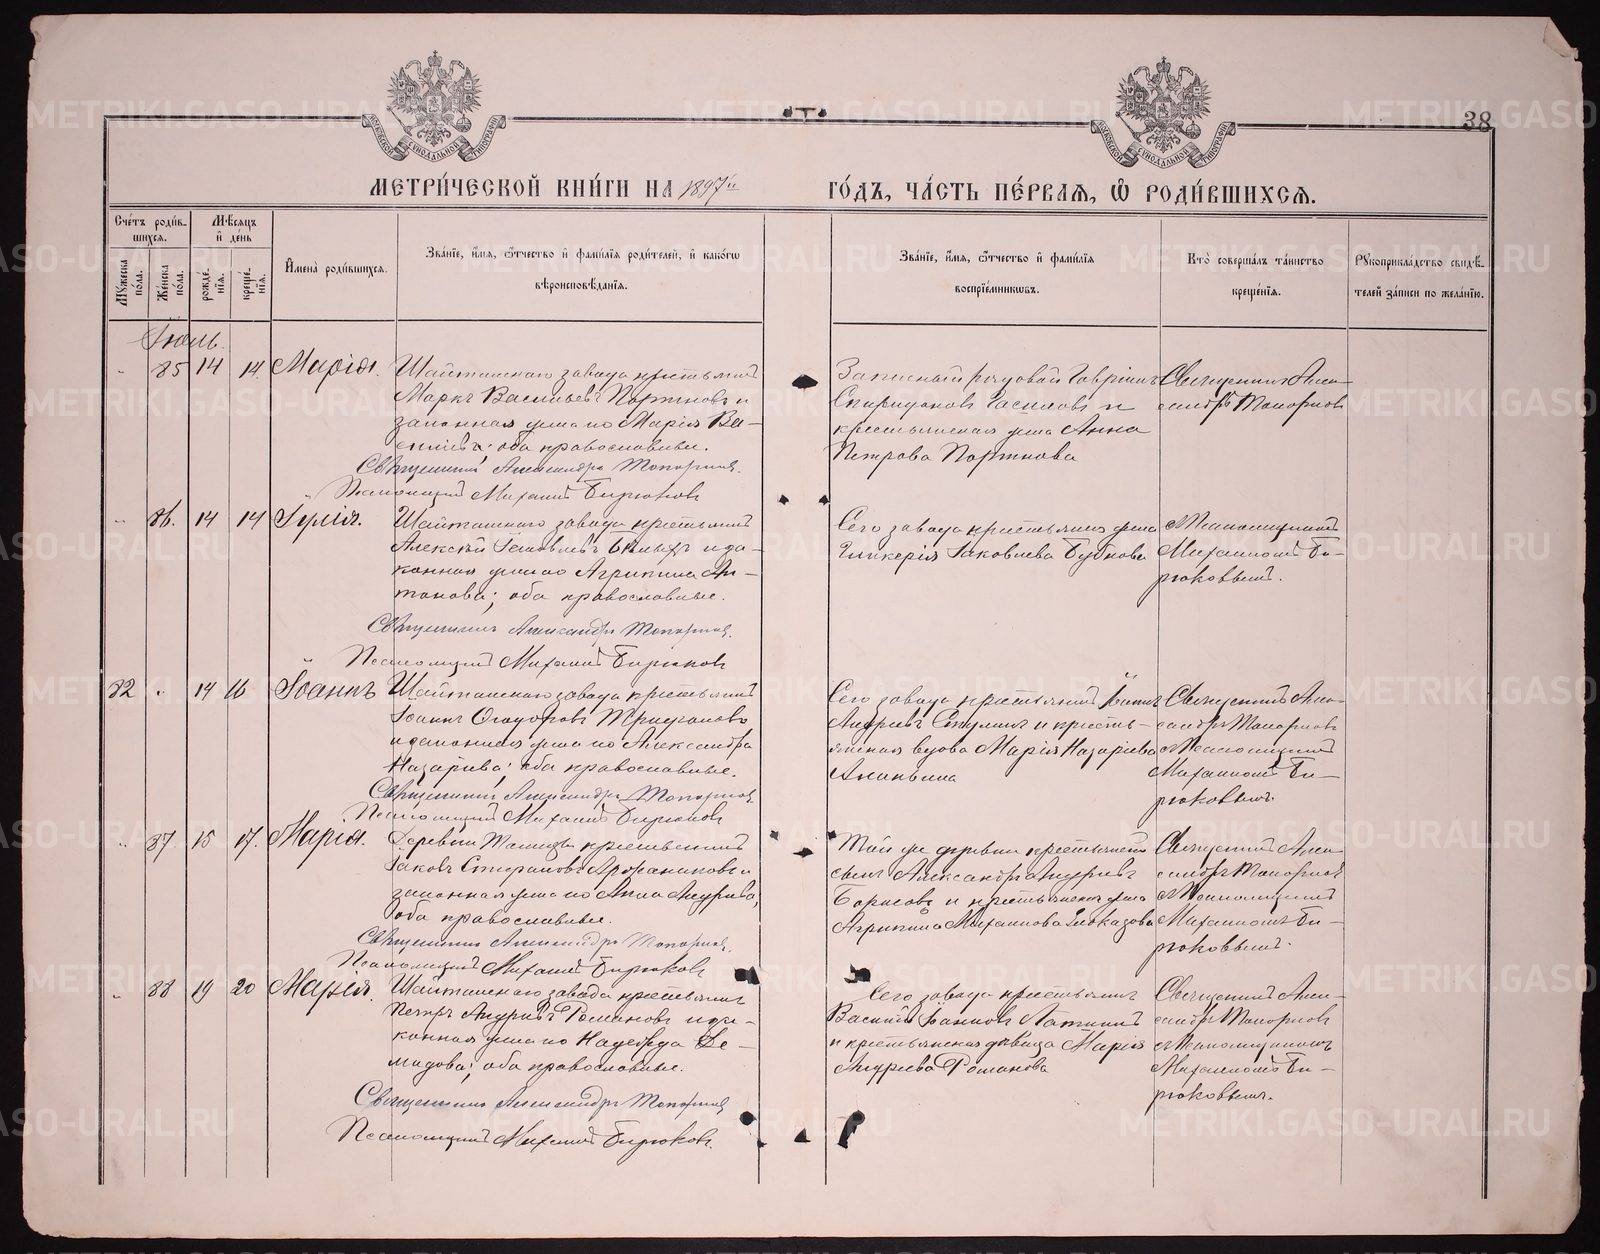 38
МЕТРИ́ЧЕСКОЙ КНИ́ГИ НА 1897й ГО́ДЪ, ЧА́СТЬ ПЕ́РВАЯ, Ѡ РОДИ́ВШИХСЯ.
Сче́тъ роди́в-
шихся.
Мꙋжеска по́ла.
Же́нска по́ла.
Мѣ́сяцъ и де́нь
рожде́нія.
креще́нія.
Имена̀ роди́вшихся.
Зва́ніе, и́мя, ѻ҆́тчество и фами́лія роди́телей, и како́гѡ
вѣроисповѣ́данія.
Зва́ніе, и́мя, ѻ҆́тчество и фами́лія
воспріе́мникѡвъ.
Кто̀ соверша́лъ та́инство
креще́нія.
Рꙋкоприкла́дство свидѣ́-
телей за́писи по жела́нію.
Іюль.
85 14 14. Марія.
Шайтанскаго завода крестьянинъ
Маркъ Васильевъ Портновъ и
законная жена его Марія Ва-
сильева; оба православные.
Священникъ Александръ Топорковъ.
Псаломщикъ Михаилъ Бирюковъ
Запасный рядовой Гавріилъ
Спиридоновъ и
крестьянская жена Анна
Петрова Портнова
Священникъ Алек-
сандръ Топорковъ
86. 14 14 Іулія.
Шайтанскаго завода крестьянинъ
Алексѣй Бѣлыхъ и за-
конная жена его Агрипина Ан-
тонова; оба православные.
Священникъ Александръ Топорковъ.
Псаломщикъ Михаилъ Бирюковъ
Сего завода крестьянская жена
Гликерія Іаковлева Бубнова
Псаломщикомъ
Михаиломъ Би-
рюковымъ.
82 14 16 Іоаннъ
Шайтанскаго завода крестьянинъ
Іоаннъ Ѳедоровъ
и законная жена его Александра
Назарьева; оба православные.
Священникъ Александръ Топорковъ
Псаломщикъ Михаилъ Бирюковъ
Сего завода крестьянинъ
Андреевъ и кресть-
янская вдова Марія Назарьева
Ананьина
Священникъ Алек-
сандръ Топорковъ
Псаломщикомъ
Михаиломъ Би-
рюковымъ.
87. 15 17. Марія.
Деревни крестьянинъ
Іаковъ и
законная жена его Анна Андреева;
оба православные.
Священникъ Александръ Топорковъ.
Псаломщикъ Михаилъ Бирюковъ
Той же деревни крестьянскій
сынъ Александръ Андреевъ
Борисовъ и крестьянская жена
Агрипина Михаилова Глоказова
Священникъ Алек-
сандръ Топорковъ
Псаломщикомъ
Михаиломъ Би-
рюковымъ.
88 19 20 Марія.
Шайтанскаго завода крестьянинъ
Петръ Андреевъ Романовъ и за-
конная жена его Надежда Де-
мидова; оба православные.
Священникъ Александръ Топорковъ
Псаломщикъ Михаилъ Бирюковъ.
Сего завода крестьянинъ
Василій Іоанновъ
и крестьянская дѣвица Марія
Андреева Романова
Священникъ Алек-
сандръ Топорковъ
Псаломщикомъ
Михаиломъ Би-
рюковымъ.
METRIKI.GASO-URAL.RU